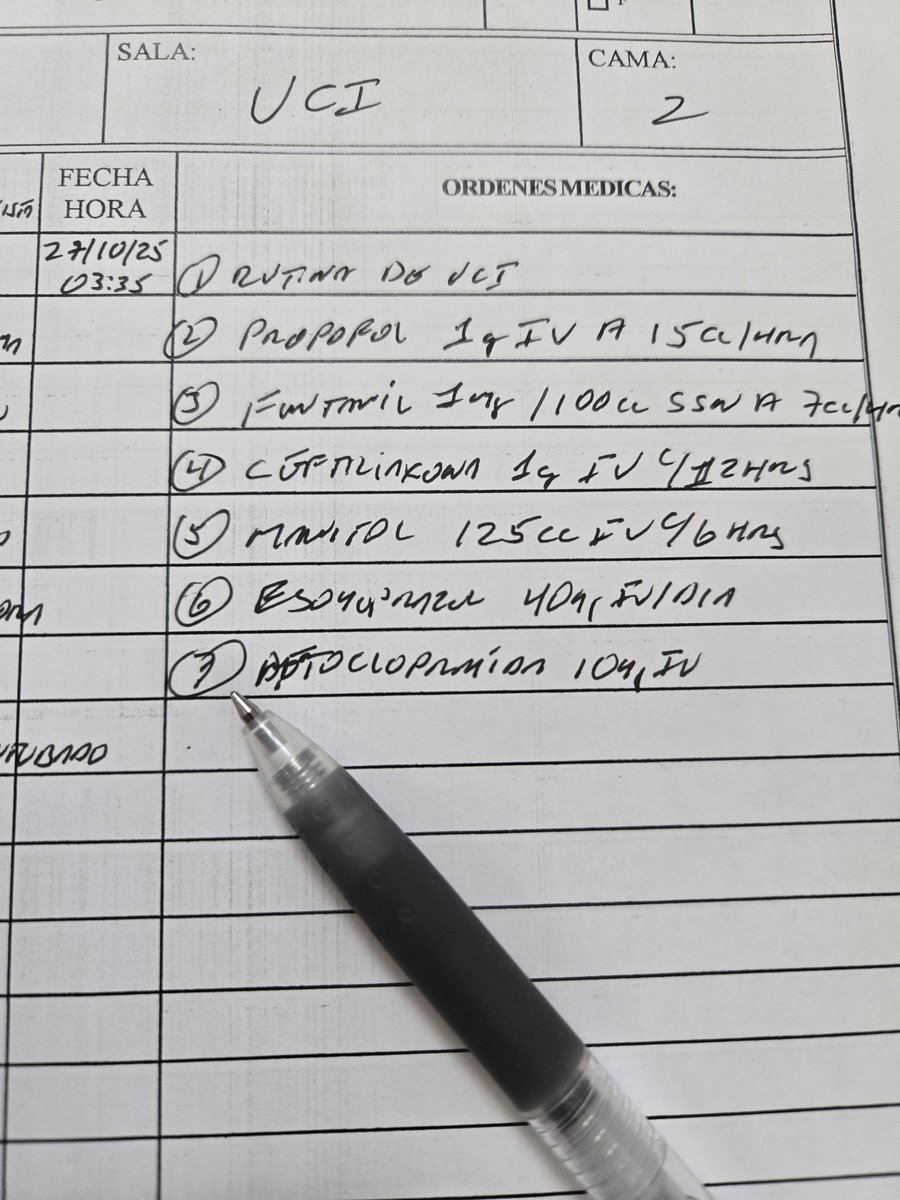 SALA:
UCI
CAMA:
2
FECHA
HORA
ORDENES MEDICAS:
27/10/25
03:35
① RUTINA DE UCI
② PROPOFOL 1g IV A 15CC/HRA
③ FENTANIL 1mg /100cc SSN A 7cc/
④ CEFTRIAXONA 1g IV C/12HRS
⑤ MANITOL 125CC IV C/6 HRS
⑥ ESOMEPRAZOL 40mg IV/DIA
⑦ METOCLOPRAMIDA 10mg IV